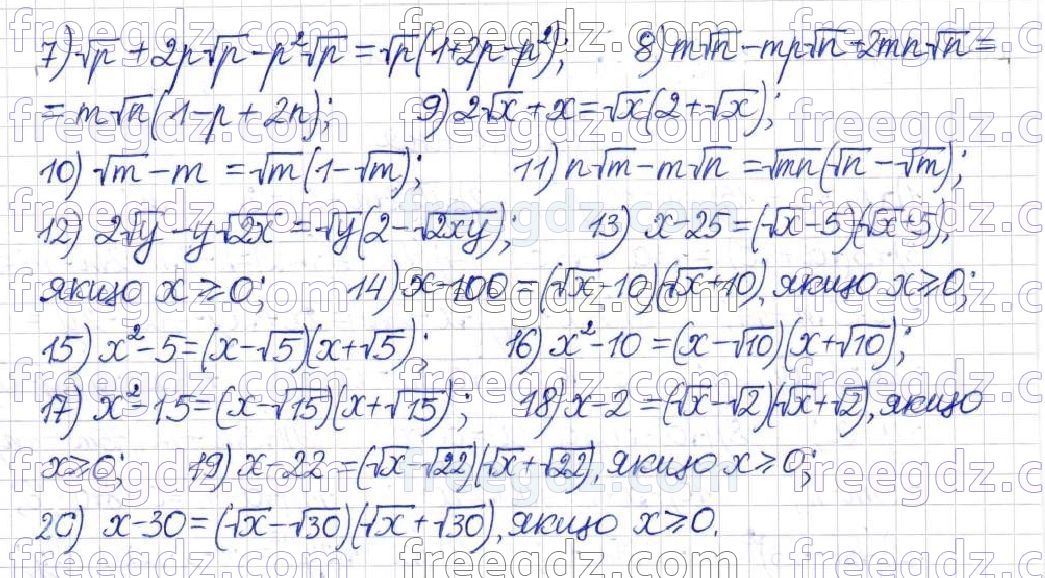 7) √p + 2p√p - p²√p = √p(1+2p-p²); 8) m√n - mp√n + 2mn√n =
= m√n(1-p+2n); 9) 2√x + x = √x(2+√x);
10) √m - m = √m(1-√m); 11) n√m - m√n = √mn(√n - √m);
12) 2√y - y√2x = √y(2-√2xy); 13) x-25 = (√x-5)(√x+5),
якщо x ≥ 0; 14) x-100 = (√x-10)(√x+10), якщо x ≥ 0;
15) x²-5 = (x-√5)(x+√5); 16) x²-10 = (x-√10)(x+√10);
17) x²-15 = (x-√15)(x+√15); 18) x-2 = (√x-√2)(√x+√2), якщо
x ≥ 0; 19) x-22 = (√x-√22)(√x+√22), якщо x ≥ 0;
20) x-30 = (√x-√30)(√x+√30), якщо x ≥ 0.
freegdz.com